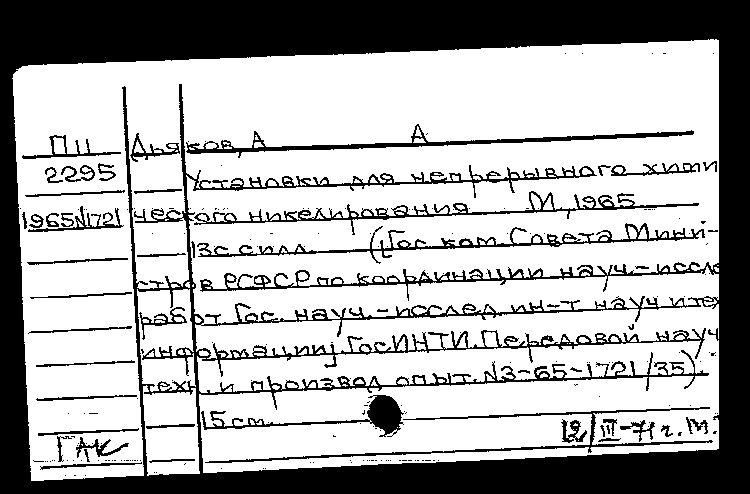 П11 Дьяков, А А
2295 Установки для непрерывного хими
1965№1721 ческого никелирования М., 1965
13с силл. ([Гос ком. Совета Мини-
стров РСФСР по координации науч.-иссле
работ Гос. науч.-исслед ин-т науч и тех
информации]. ГосИНТИ. Передовой науч
техн. и производ опыт. №3-65-1721/35).
15 см.
ГАК 12/III-71 г. М.